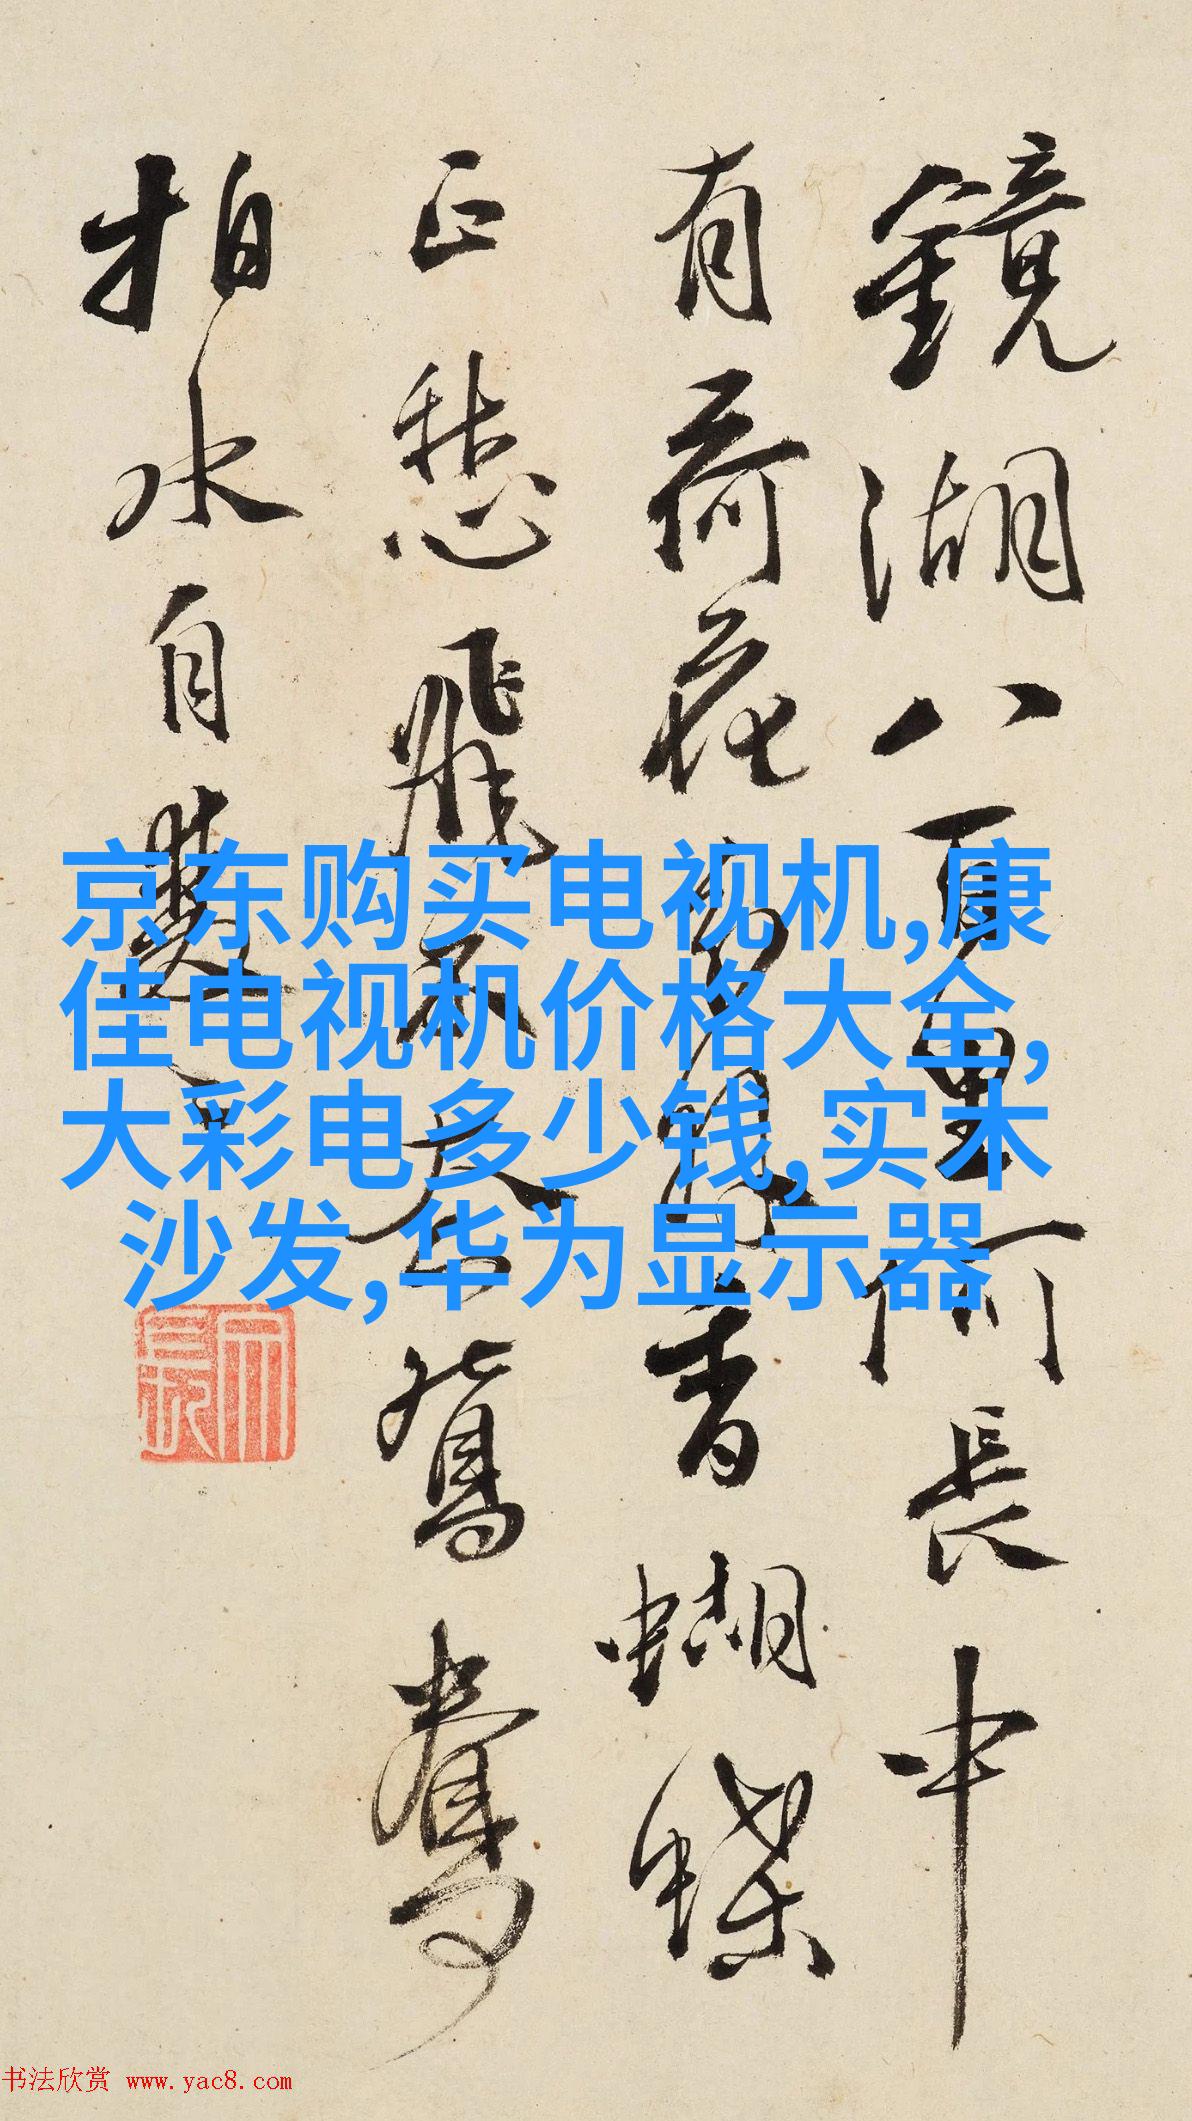 鏡湖八百里何長中
有荷花香蝴蝶
正愁飛不去鴛鴦
拍水自雙
京东购买电视机,康
佳电视机价格大全,
大彩电多少钱,实木
沙发,华为显示器
书法欣赏 www.yac8.com